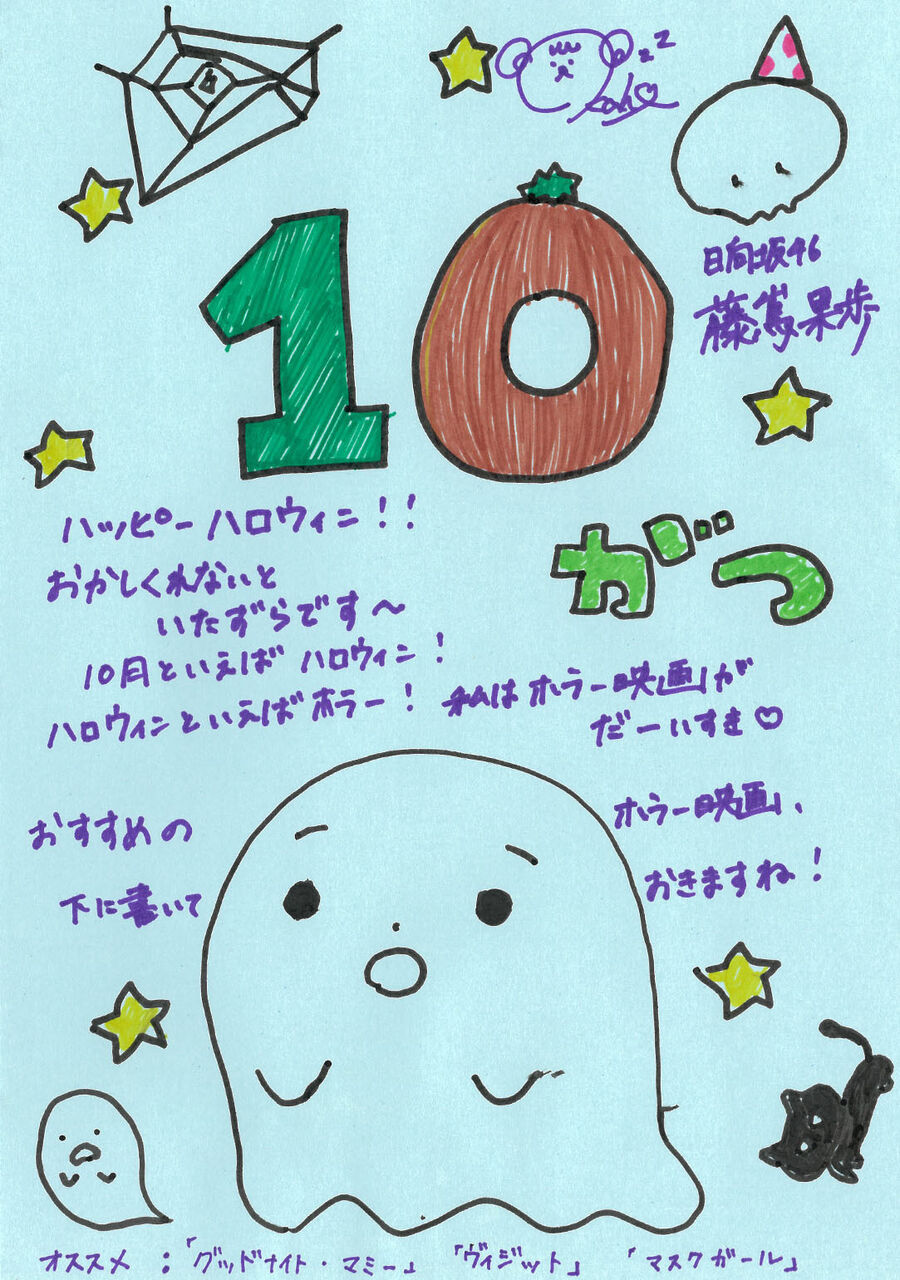 Kaho
日向坂46
藤嶌果歩
10
がつ
ハッピーハロウィン!!
おかしくれないと
いたずらです〜
10月といえばハロウィン!
ハロウィンといえばホラー! 私はホラー映画が
だーいすき♡
おすすめの ホラー映画、
下に書いて おきますね!
オススメ :「グッドナイト・マミー」 「ヴィジット」 「マスクガール」